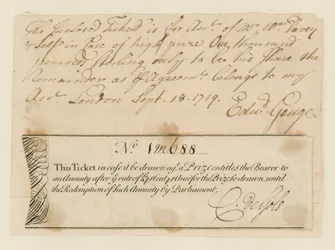 The Inclosed Ticket is for Acct. of Mr. Wm.
& Self in Case of high prize One thousand
pounds Sterling only to be his share the
Remainder as & Agreemt. belongs to my
Acct. London Sept. 18. 1719.
Edwd. Gouge
No. 1m688
This Ticket in case it be drawn agt. a Prize entitles the Bearer to
an Annuity after ye rate of Cent for the Prize drawn, until
the Redemption of Such Annuity by Parliament.